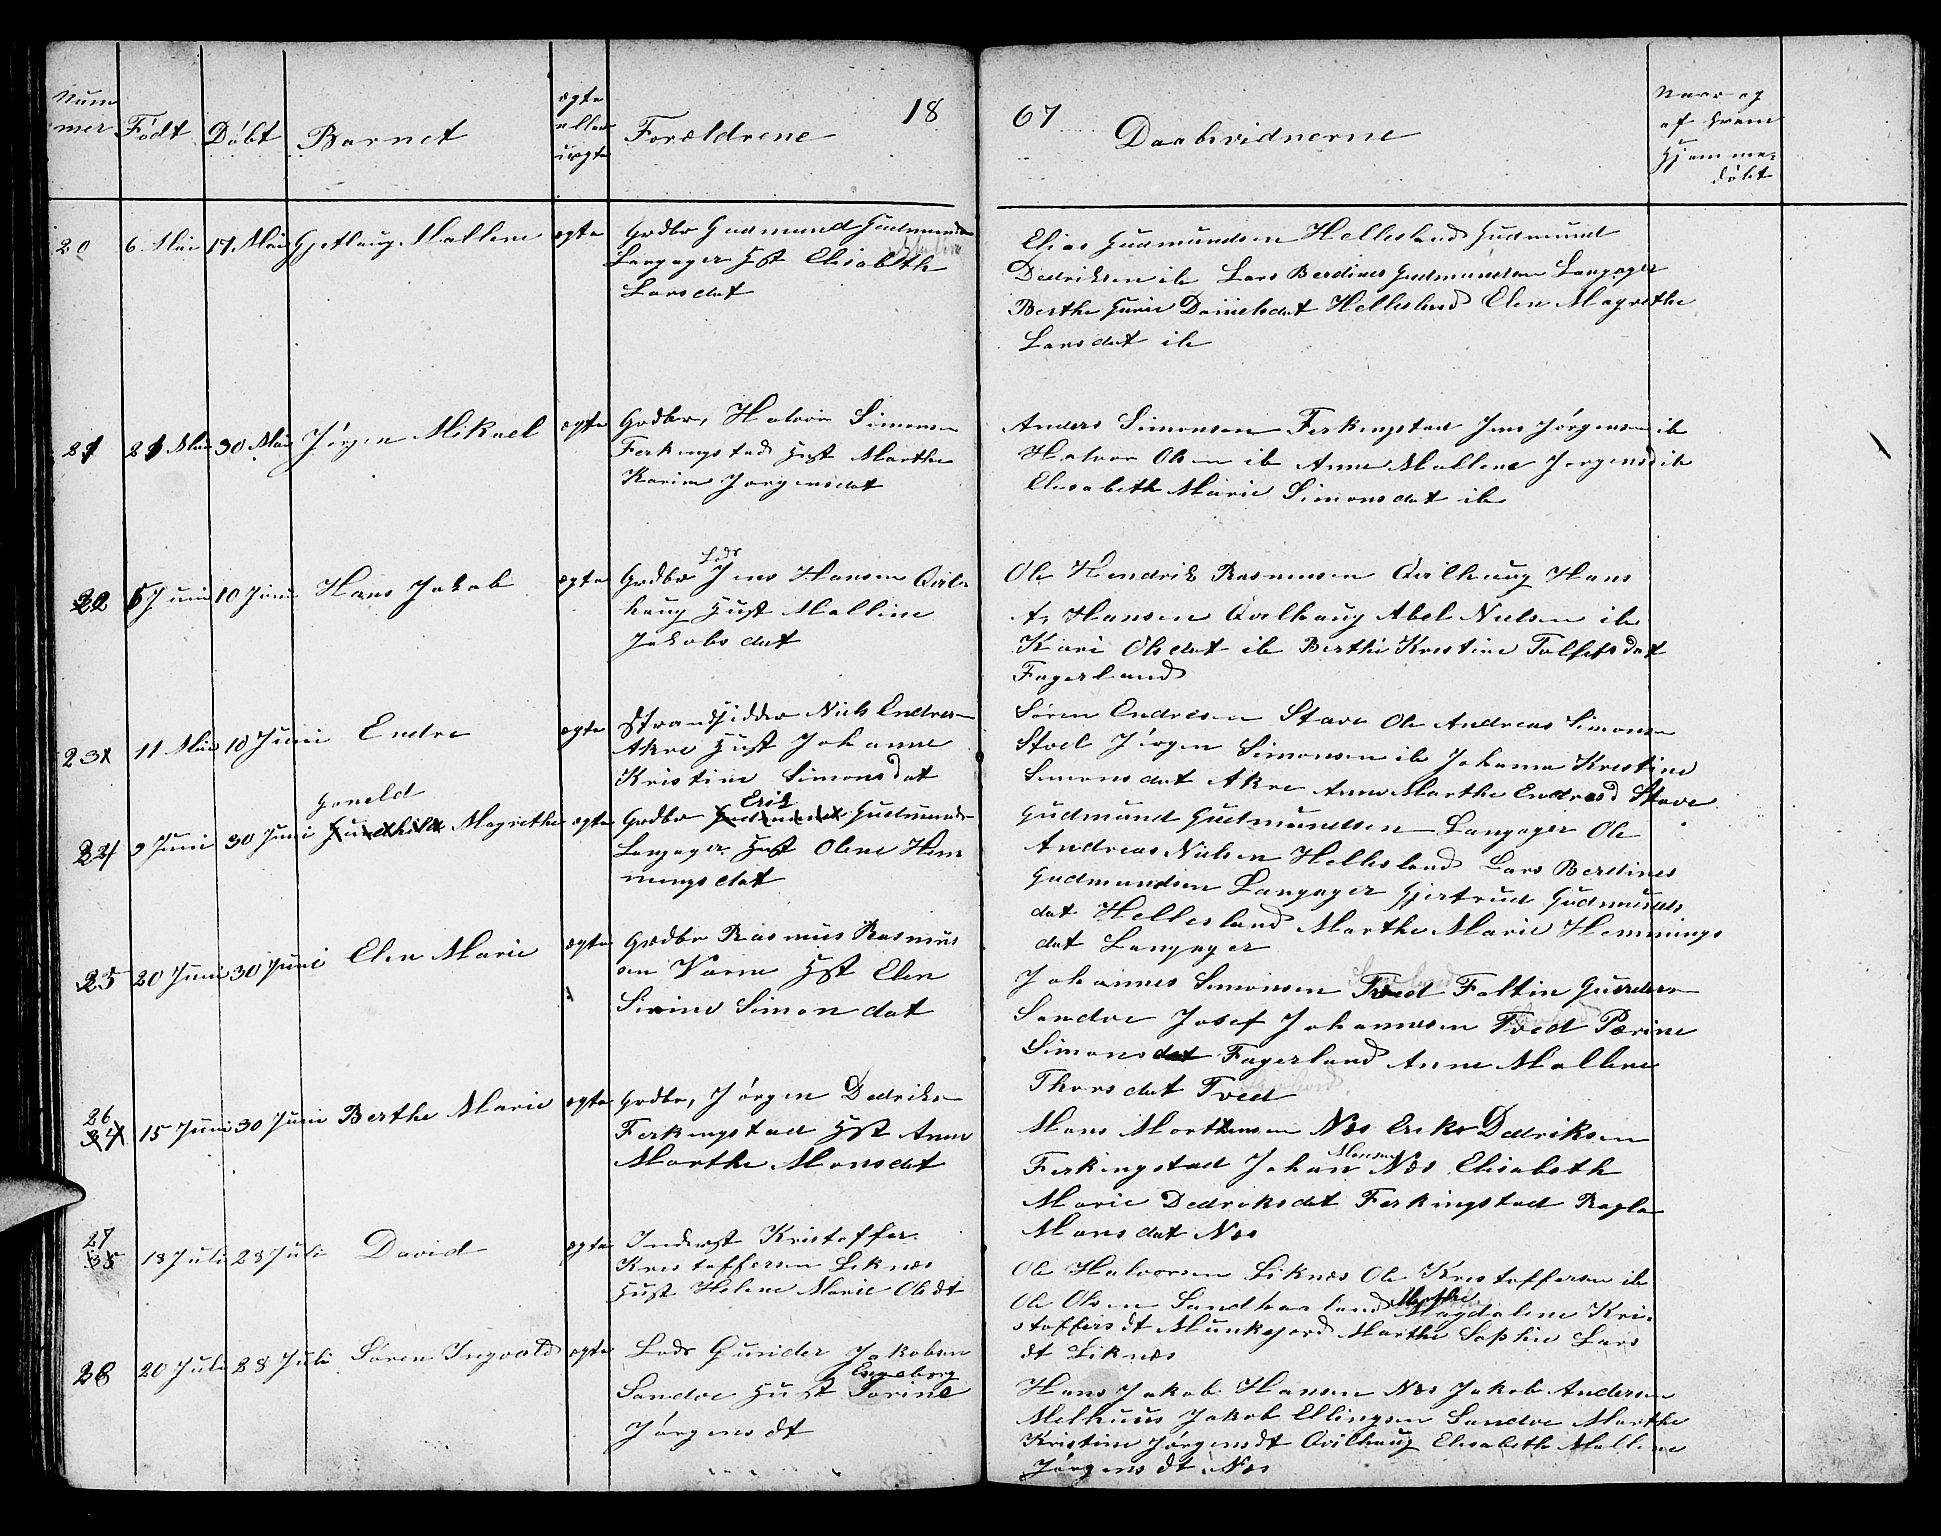 Num
mer
Födt
Döbt
Barnet
ægte
eller
uægte
Forældrene
18
67
Daabsvidnerne
Naar og
af hvem
Hjemme-
döbt
20 6 Mai 17 Mai Mallene ægte Grdbr Gudmund Gudmunds
Langager Hst Elisabeth
Larsdat
Elias Gudmundsen Hellesland Gudmund
Dedriksen ib Lars Berdines Gudmundsen Langager
Berthe Gurie Danielsdat Hellesland Elen Magrethe
Larsdat ib
21 21 Mai 30 Mai Jörgen Mikael ægte Grdbr, Halvor Simonsen
Ferkingstad Hust Marthe
Karine Jörgensdat
Anders Simonsen Ferkingstad Jens Jörgensen ib
Halvor Olsen ib Anne Mallene Jörgensd ib
Elisabeth Marie Simonsdat ib
22 5 Juni 10 Juni Hans Jakob ægte Grdbr Lods Jens Hansen Qvil-
haug Hust Malline
Jakobsdat
Ole Hendrik Rasmusen Qvilhaug Hans
A, Hansen Qvilhaug Abel Nielsen ib
Kari Olsdat ib Berthe Kristine Tollefsdat
Fagerland
23 11 Mai 10 Juni Endre ægte Strandsidder Niels Endresen
Akre Hust Johanne
Kristine Simonsdat
Sören Endresen Stave Ole Andreas Simonsen
Stoel Jörgen Simonsen ib Johanna Kristine
Simonsdat Akre Anne Marthe Endresd Stave
24 9 Juni 30 Juni Goneld Gundhilde Magrethe ægte Grdbr Erik Gudmund Gudmunds-
Langager Hust Olene Hem
mingsdat
Gudmund Gudmundsen Langager Ole
Andreas Nielsen Hellesland Lars Berdines
Gudmundsen Langager Gjertrud Gudmunds
dat Hellesland Marthe Marie Hemmings
dat Langager
25 20 Juni 30 Juni Elen Marie ægte Grdbr Rasmus Rasmus
sen Hst Elen
Sirine Simondat
Johannes Simonsen Tved Foltin Gundersen
Sandve Josef Johannesen Tved Pærine
Simonsdat Fagerland Anne Mallene
Thorsdat Tved
26 15 Juni 30 Juni Berthe Marie ægte Grdbr, Jörgen Dedriks-
Ferkingstad Hst Anne
Marthe Monsdat
Mons Morthensen Næs Erik Dedriksen
Ferkingstad Johan Monsen Næs Elisabeth
Marie Dedriksdat Ferkingstad Ragla
Monsdat Næs
27 18 Juli 28 Juli David ægte Inderst Kristoffer
Kristoffersen Liknæs
Hust Helene Marie Olsdt
Ole Halvorsen Liknæs Ole Kristoffersen ib
Ole Olsen Sandhaaland Marthe Magdalene Kri-
stoffersdt Munkejord Marthe Sophie Lars
dt Liknæs
28 20 Juli 28 Juli Sören Ingvald ægte Lods Gunder Jakobsen
Sandve Hust Engeborg Torine
Jörgensdt
Hans Jakob Hansen Næs Jakob Andersen
Melhuus Jakob Ellingsen Sandve Marthe
Kristine Jörgensdt Qvilhaug Elisabeth Mallene
Jörgensdt Næs